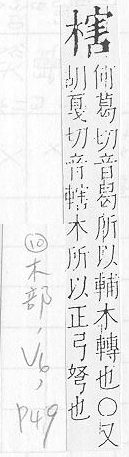 榿
何葛切音曷所以輔木轉也〇又
胡戛切音轄木所以正弓弩也
⑩木部,V6,
P49